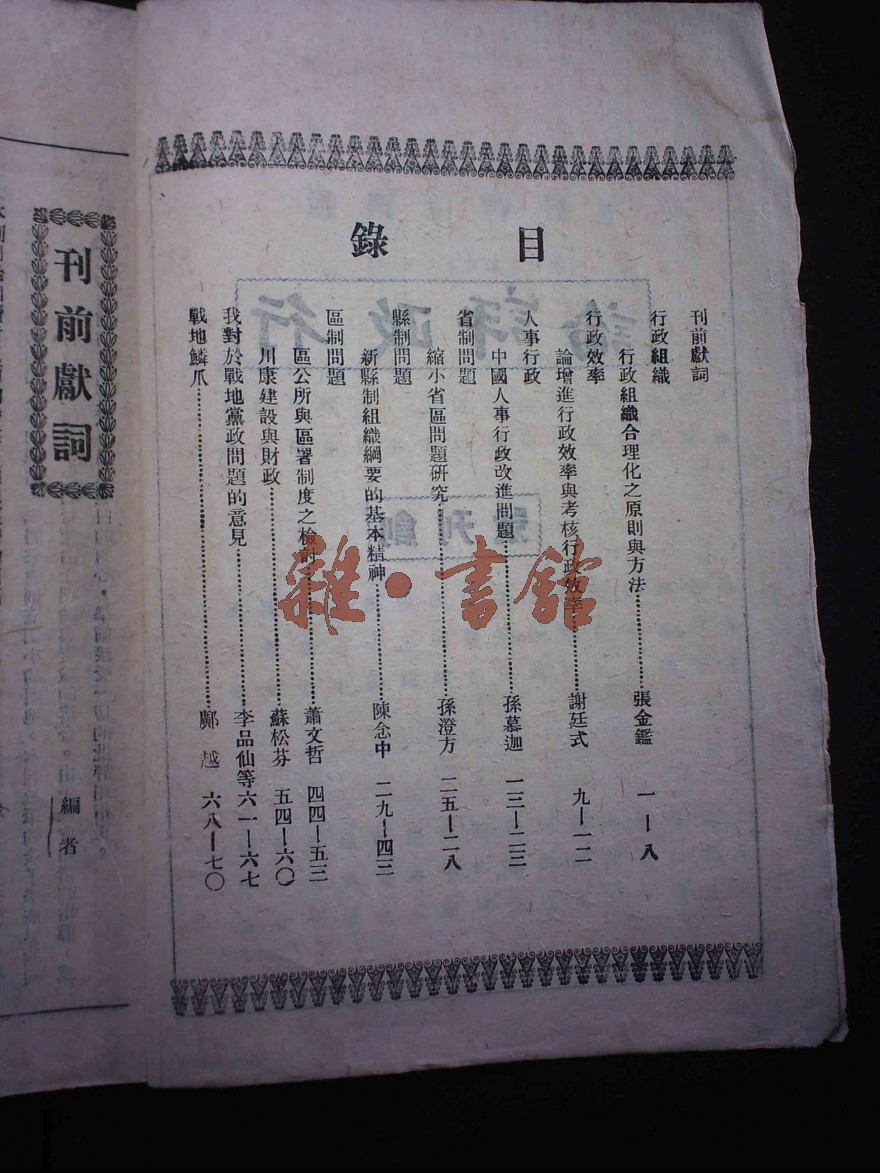 目錄
刊前獻詞
行政組織
行政組織合理化之原則與方法……張金鑑 一—八
行政效率
論增進行政效率與考核行政效率……謝廷式 九—一二
人事行政
中國人事行政改進問題……孫慕迦 一三—二三
省制問題
縮小省區問題研究……孫澄方 二五—二八
縣制問題
新縣制組織綱要的基本精神……陳念中 二九—四三
區制問題
區公所與區署制度之檢討……蕭文哲 四四—五三
川康建設與財政……蘇松芬 五四—六〇
我對於戰地黨政問題的意見……李品仙等 六一—六七
戰地鱗爪……鄺越 六八—七〇
雜·書館
刊前獻詞
編者